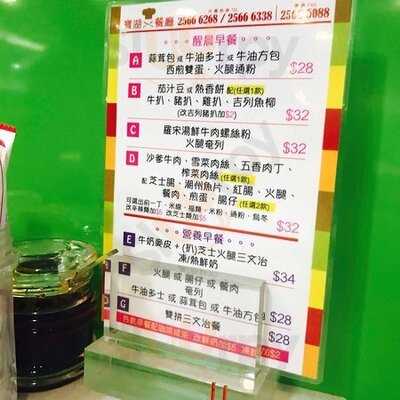 寶湖 餐廳 2566 6268 / 2566 6338
醒晨早餐
A 蒜茸包 或 牛油多士 或 牛油方包
西煎雙蛋、火腿通粉 $28
B 茄汁豆 或 熱香餅 配(任選1款)
牛扒、豬扒、雞扒、吉列魚柳
(改吉列豬扒加$2) $32
C 羅宋湯鮮牛肉螺絲粉
火腿奄列 $32
D 沙爹牛肉、雪菜肉絲、五香肉丁、
榨菜肉絲(任選1款)
配 芝士腸、潮州魚片、紅腸、火腿、
餐肉、煎蛋、腸仔(任選2款)
$32
營養早餐
E 牛奶麥皮 + (扒)芝士火腿三文治
凍/熱鮮奶 $34
F 火腿 或 腸仔 或 餐肉
奄列
牛油多士 或 蒜茸包 或 牛油方包 $28
G 雙拼三文治餐 $28